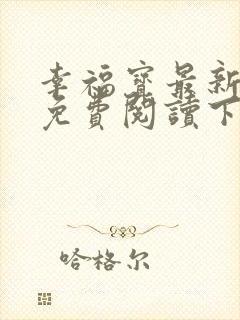 幸福寶最新
免費閱讀下
哈格尔